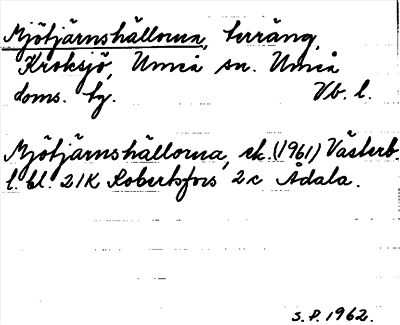 Mjötjärnshällorna, terräng,
Kroksjö, Umeå sn. Umeå
doms. tg. Vb. l.
Mjötjärnshällorna, ek. (1961) Västerb.
l. bl. 21K Robertsfors 2c Ådala.
S.P. 1962.